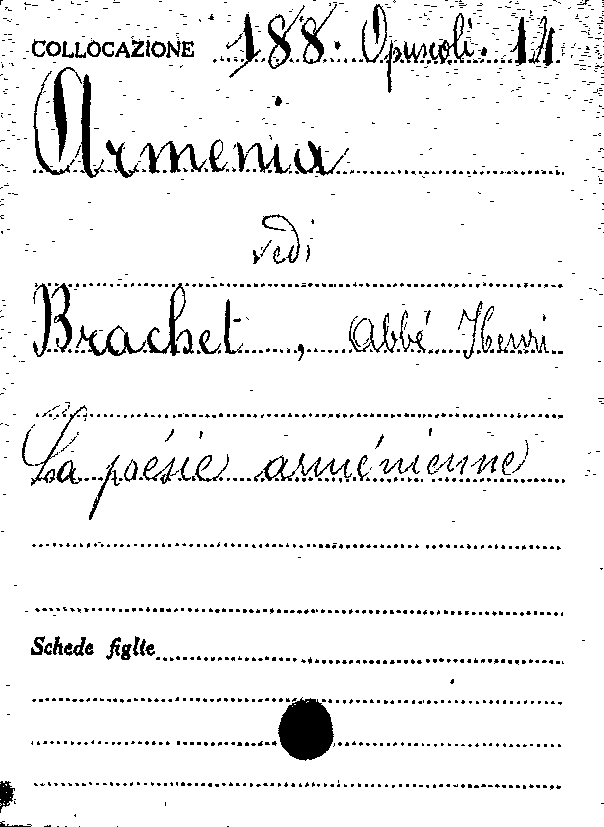 COLLOCAZIONE 188. Opuscoli. 14
Armenia
vedi
Brachet, Abbé Henri
La poésie arménienne
Schede figlie